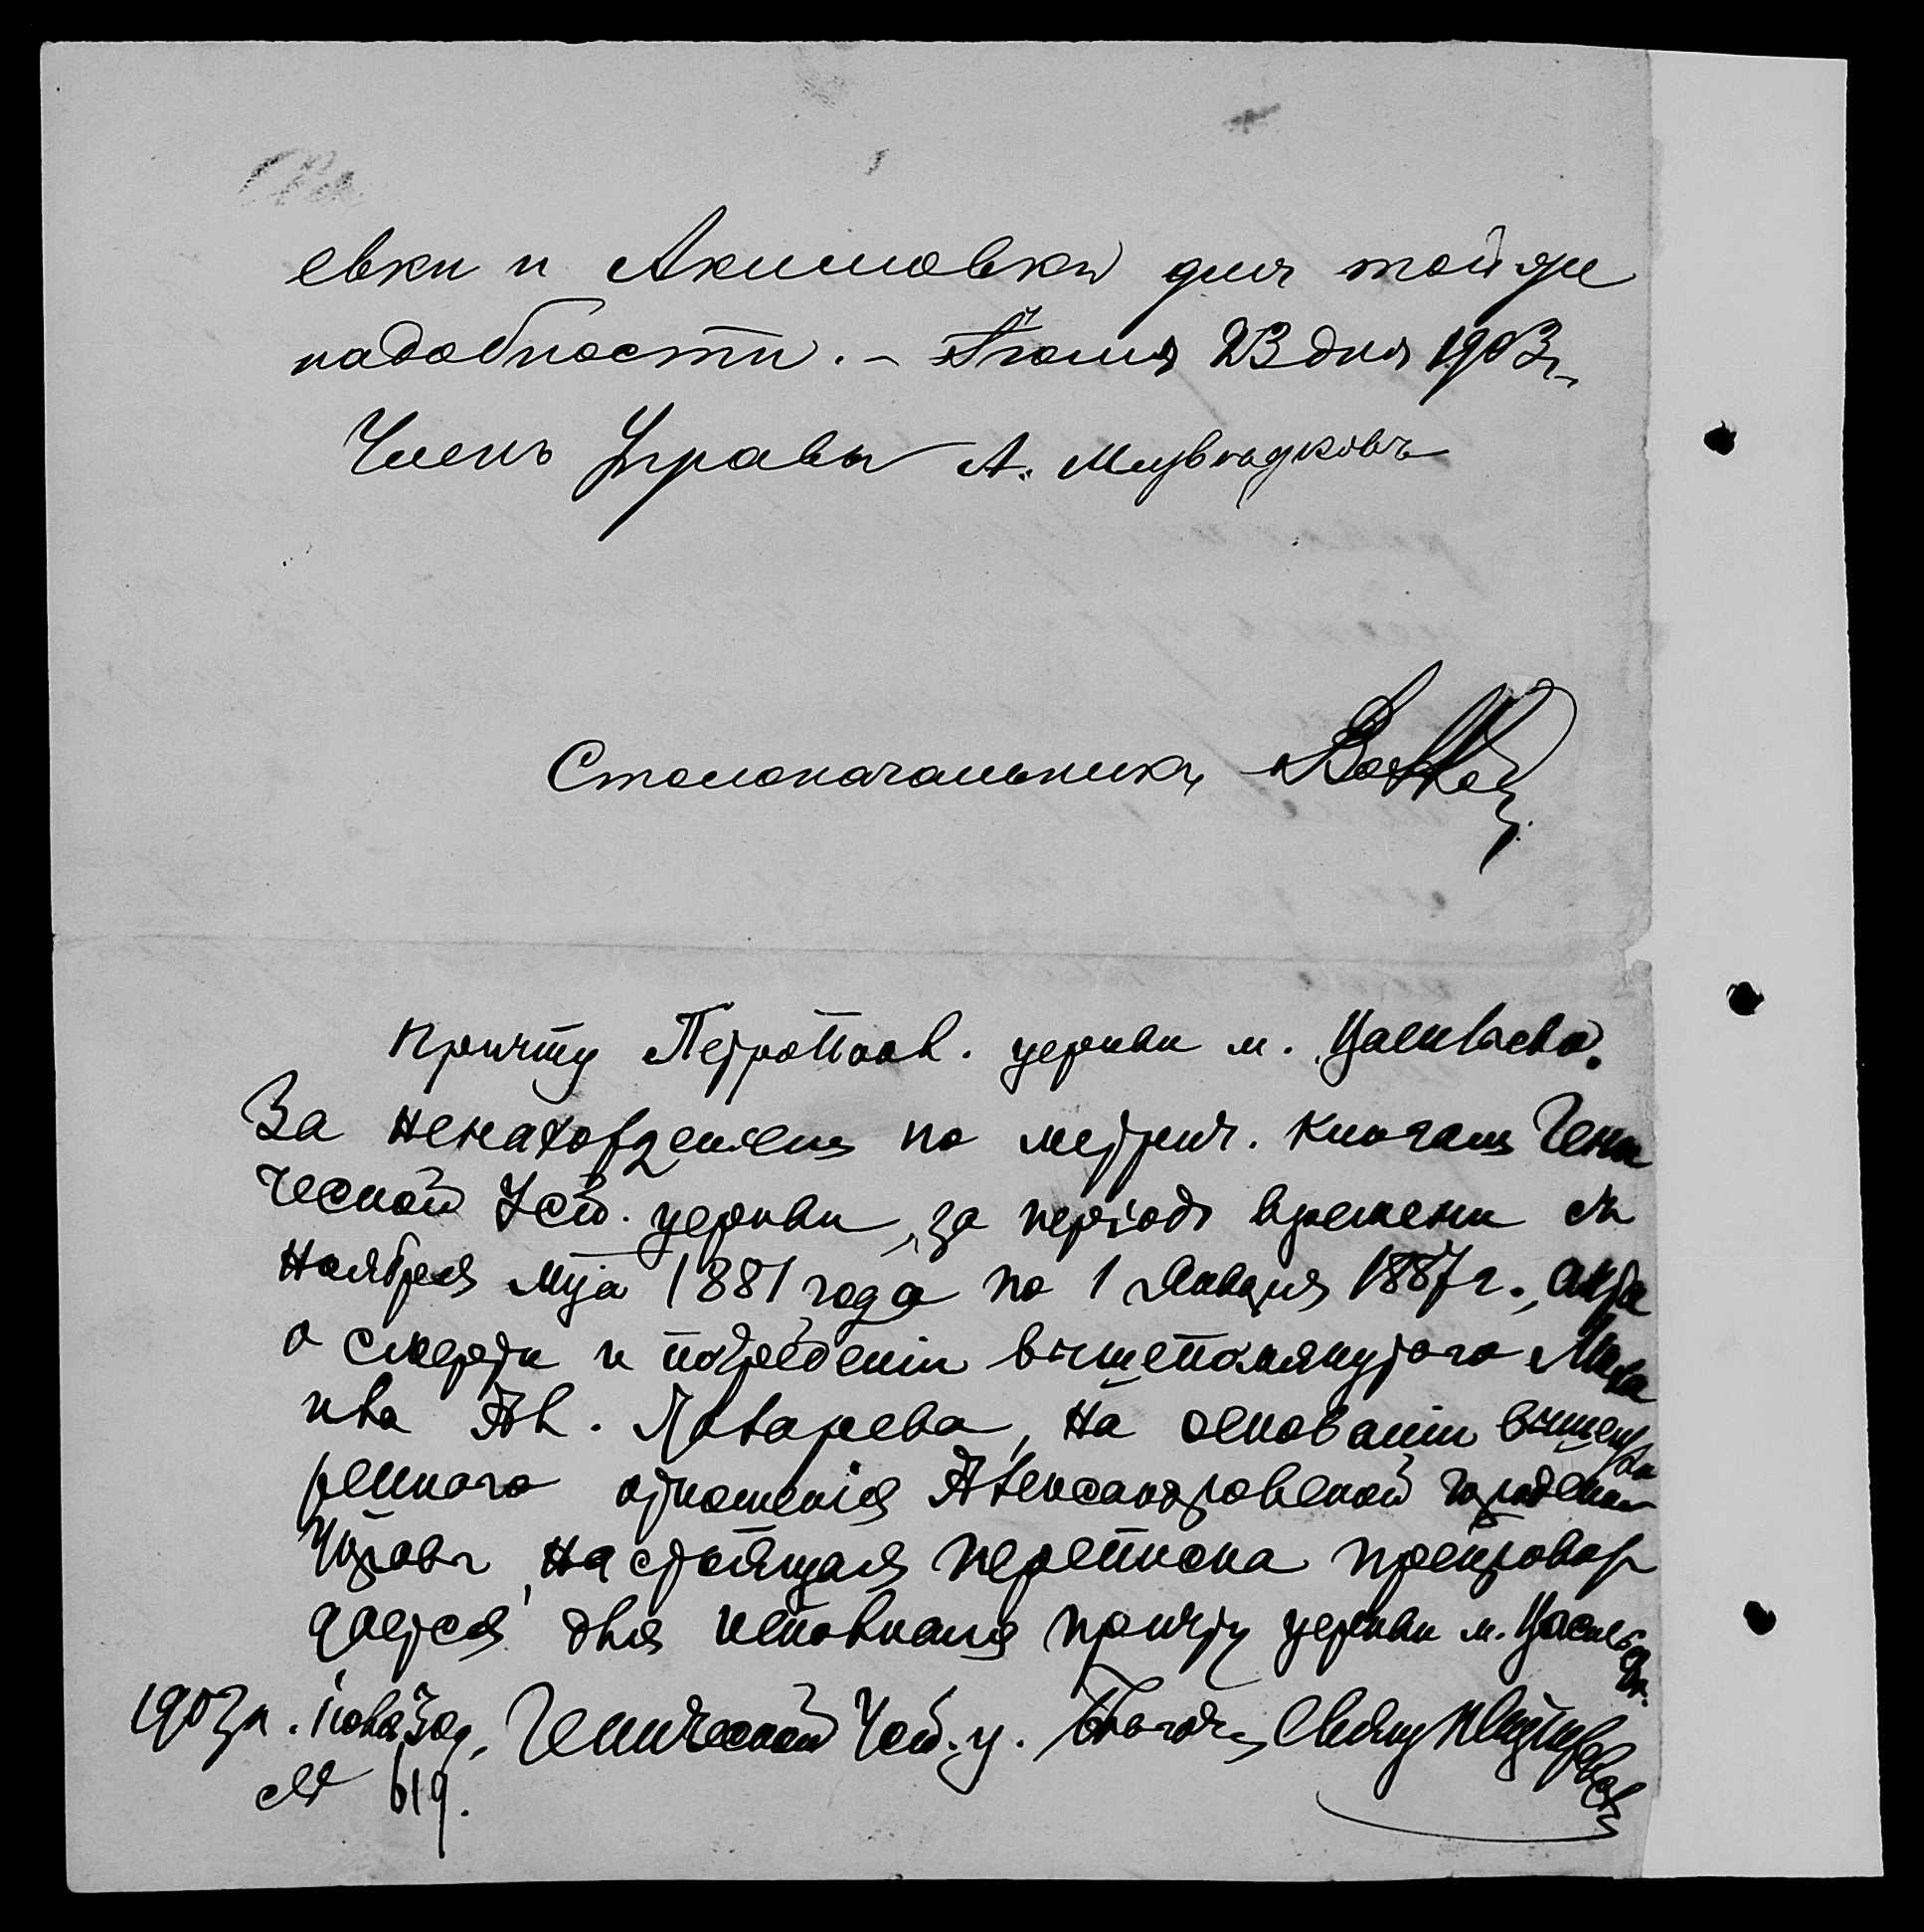 евки и Акимовки для той же
надобности. – Іюля 23 дня 1903 г.
Членъ Управы А.
Столоначальникъ
Причту Петропавл. церкви м.
За ненахожденіемъ по метрич. книгамъ Гени
ческой Усп. церкви, за періодъ времени съ
Ноября м-ца 1881 года по 1 Января 1887 г., акта
о смерти и погребеніи вышепомянутаго Миха
ила Ал. Лаварева, на основаніи
реннаго отношенія Александровской городской
Управы, настоящая переписка препровож
дается для исполненія причту церкви м.
1903 г. 30 д. Генической Усп. ц. Благоч. Свящ.
№ 619.